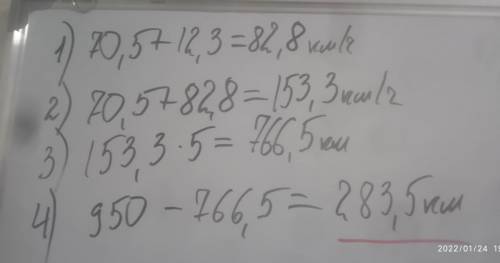 1) 70,5+12,3=82,8км/ч
2) 70,5+82,8=153,3км/ч
3) 153,3·5=766,5км
4) 950-766,5=283,5км
2022/01/24